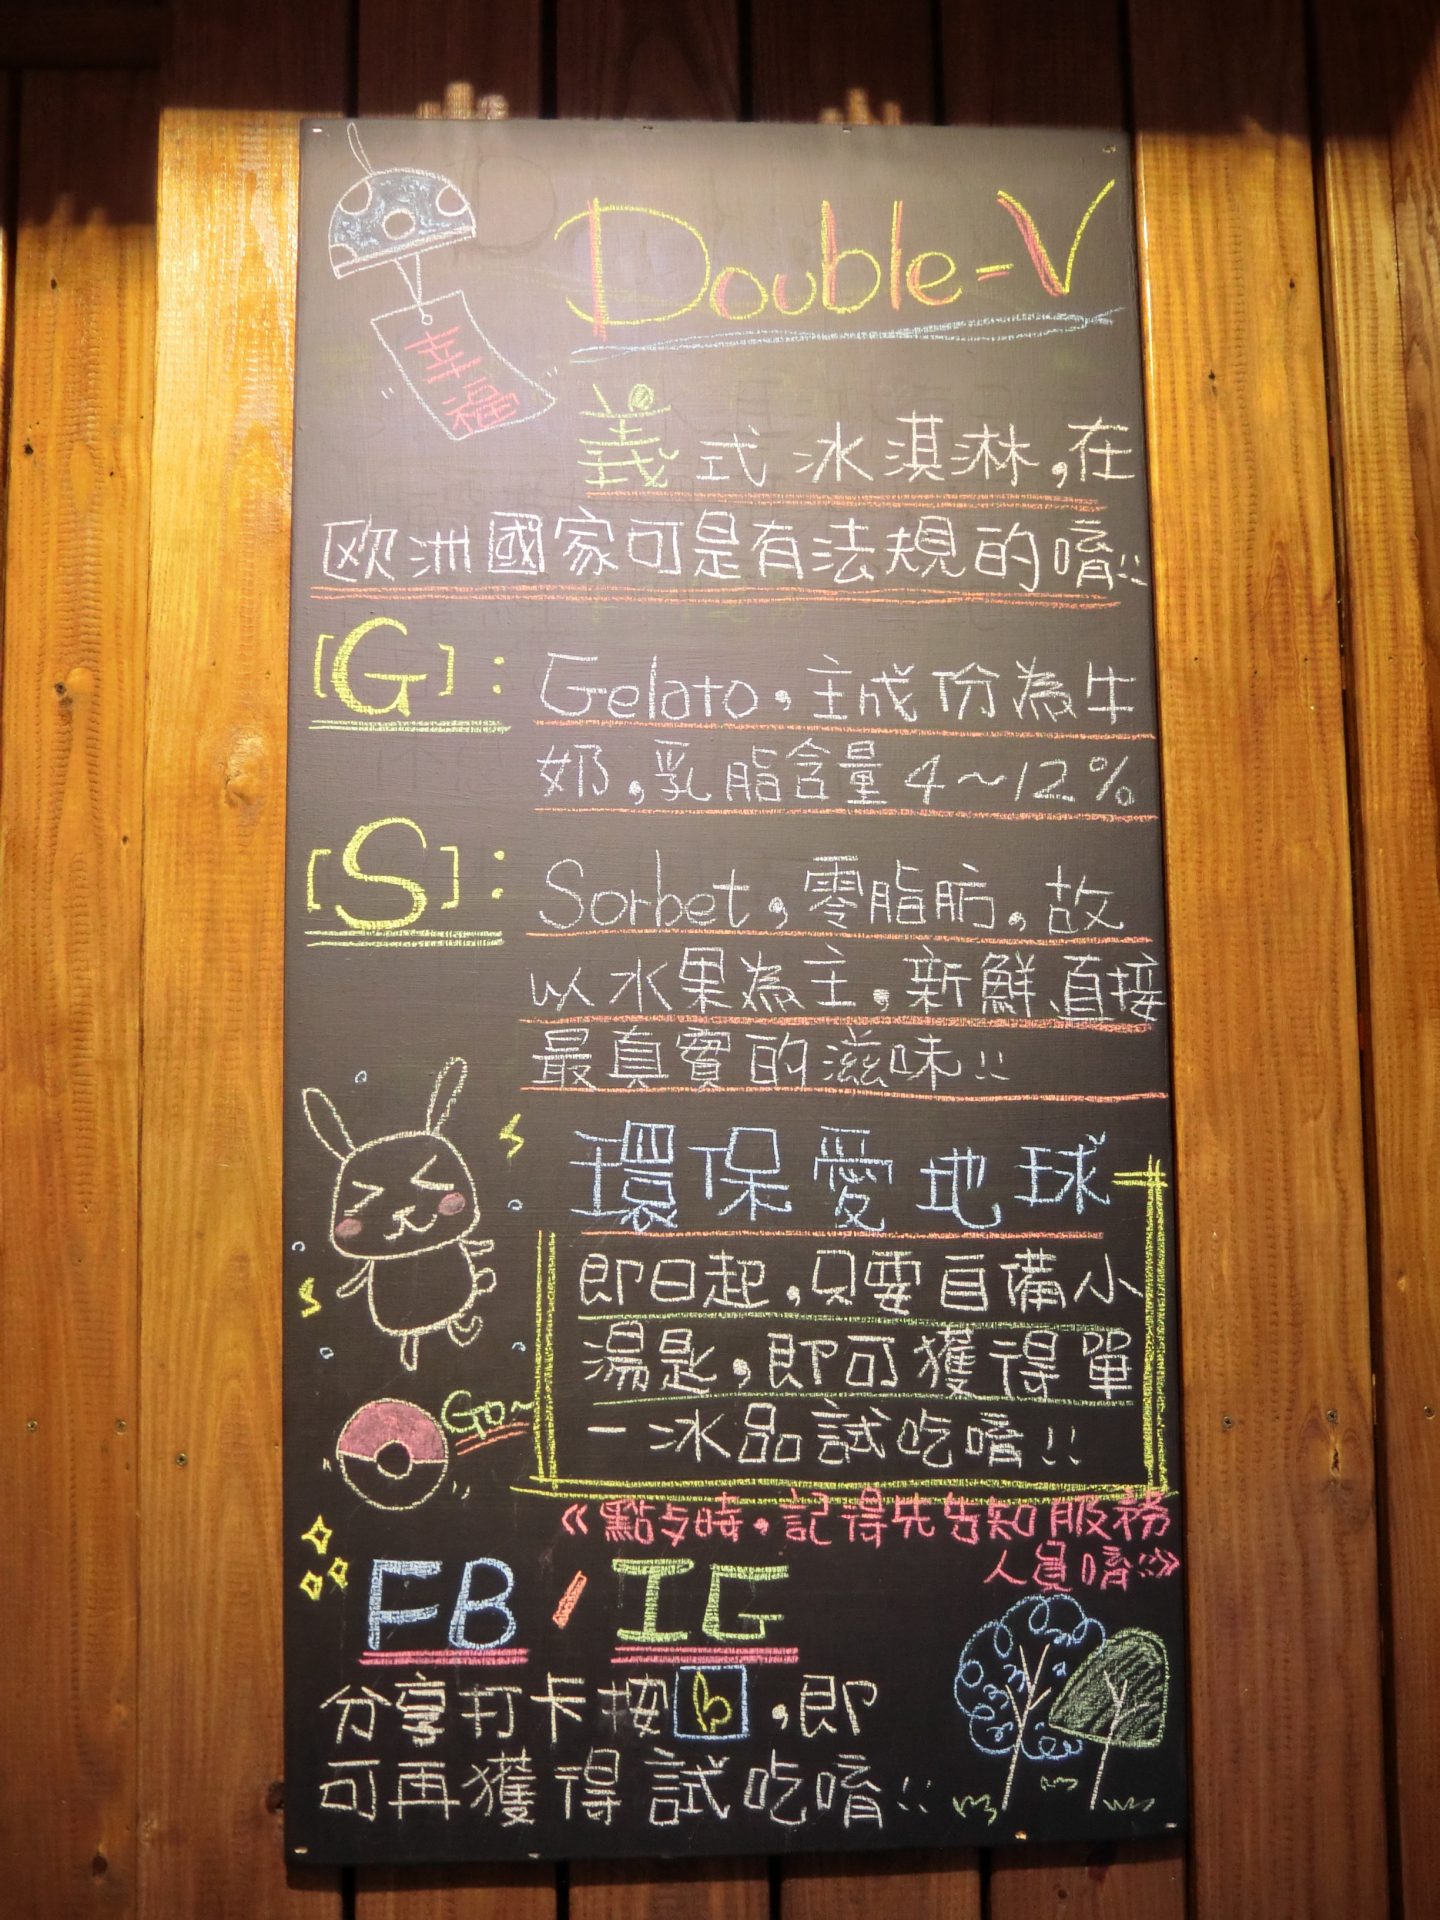 Double-V
幸福
義式冰淇淋,在
欧洲國家可是有法規的唷!!
[G]: Gelato,主成份為牛
奶,乳脂含量4~12%
[S]: Sorbet,零脂肪,故
以水果為主,新鮮、直接
最真實的滋味!!
環保愛地球
即日起,只要自備小
湯匙,即可獲得單
一冰品試吃唷!!
Go~
《點餐時,記得先告知服務
人員唷!!》
FB / IG
分享打卡按b,即
可再獲得試吃唷!!